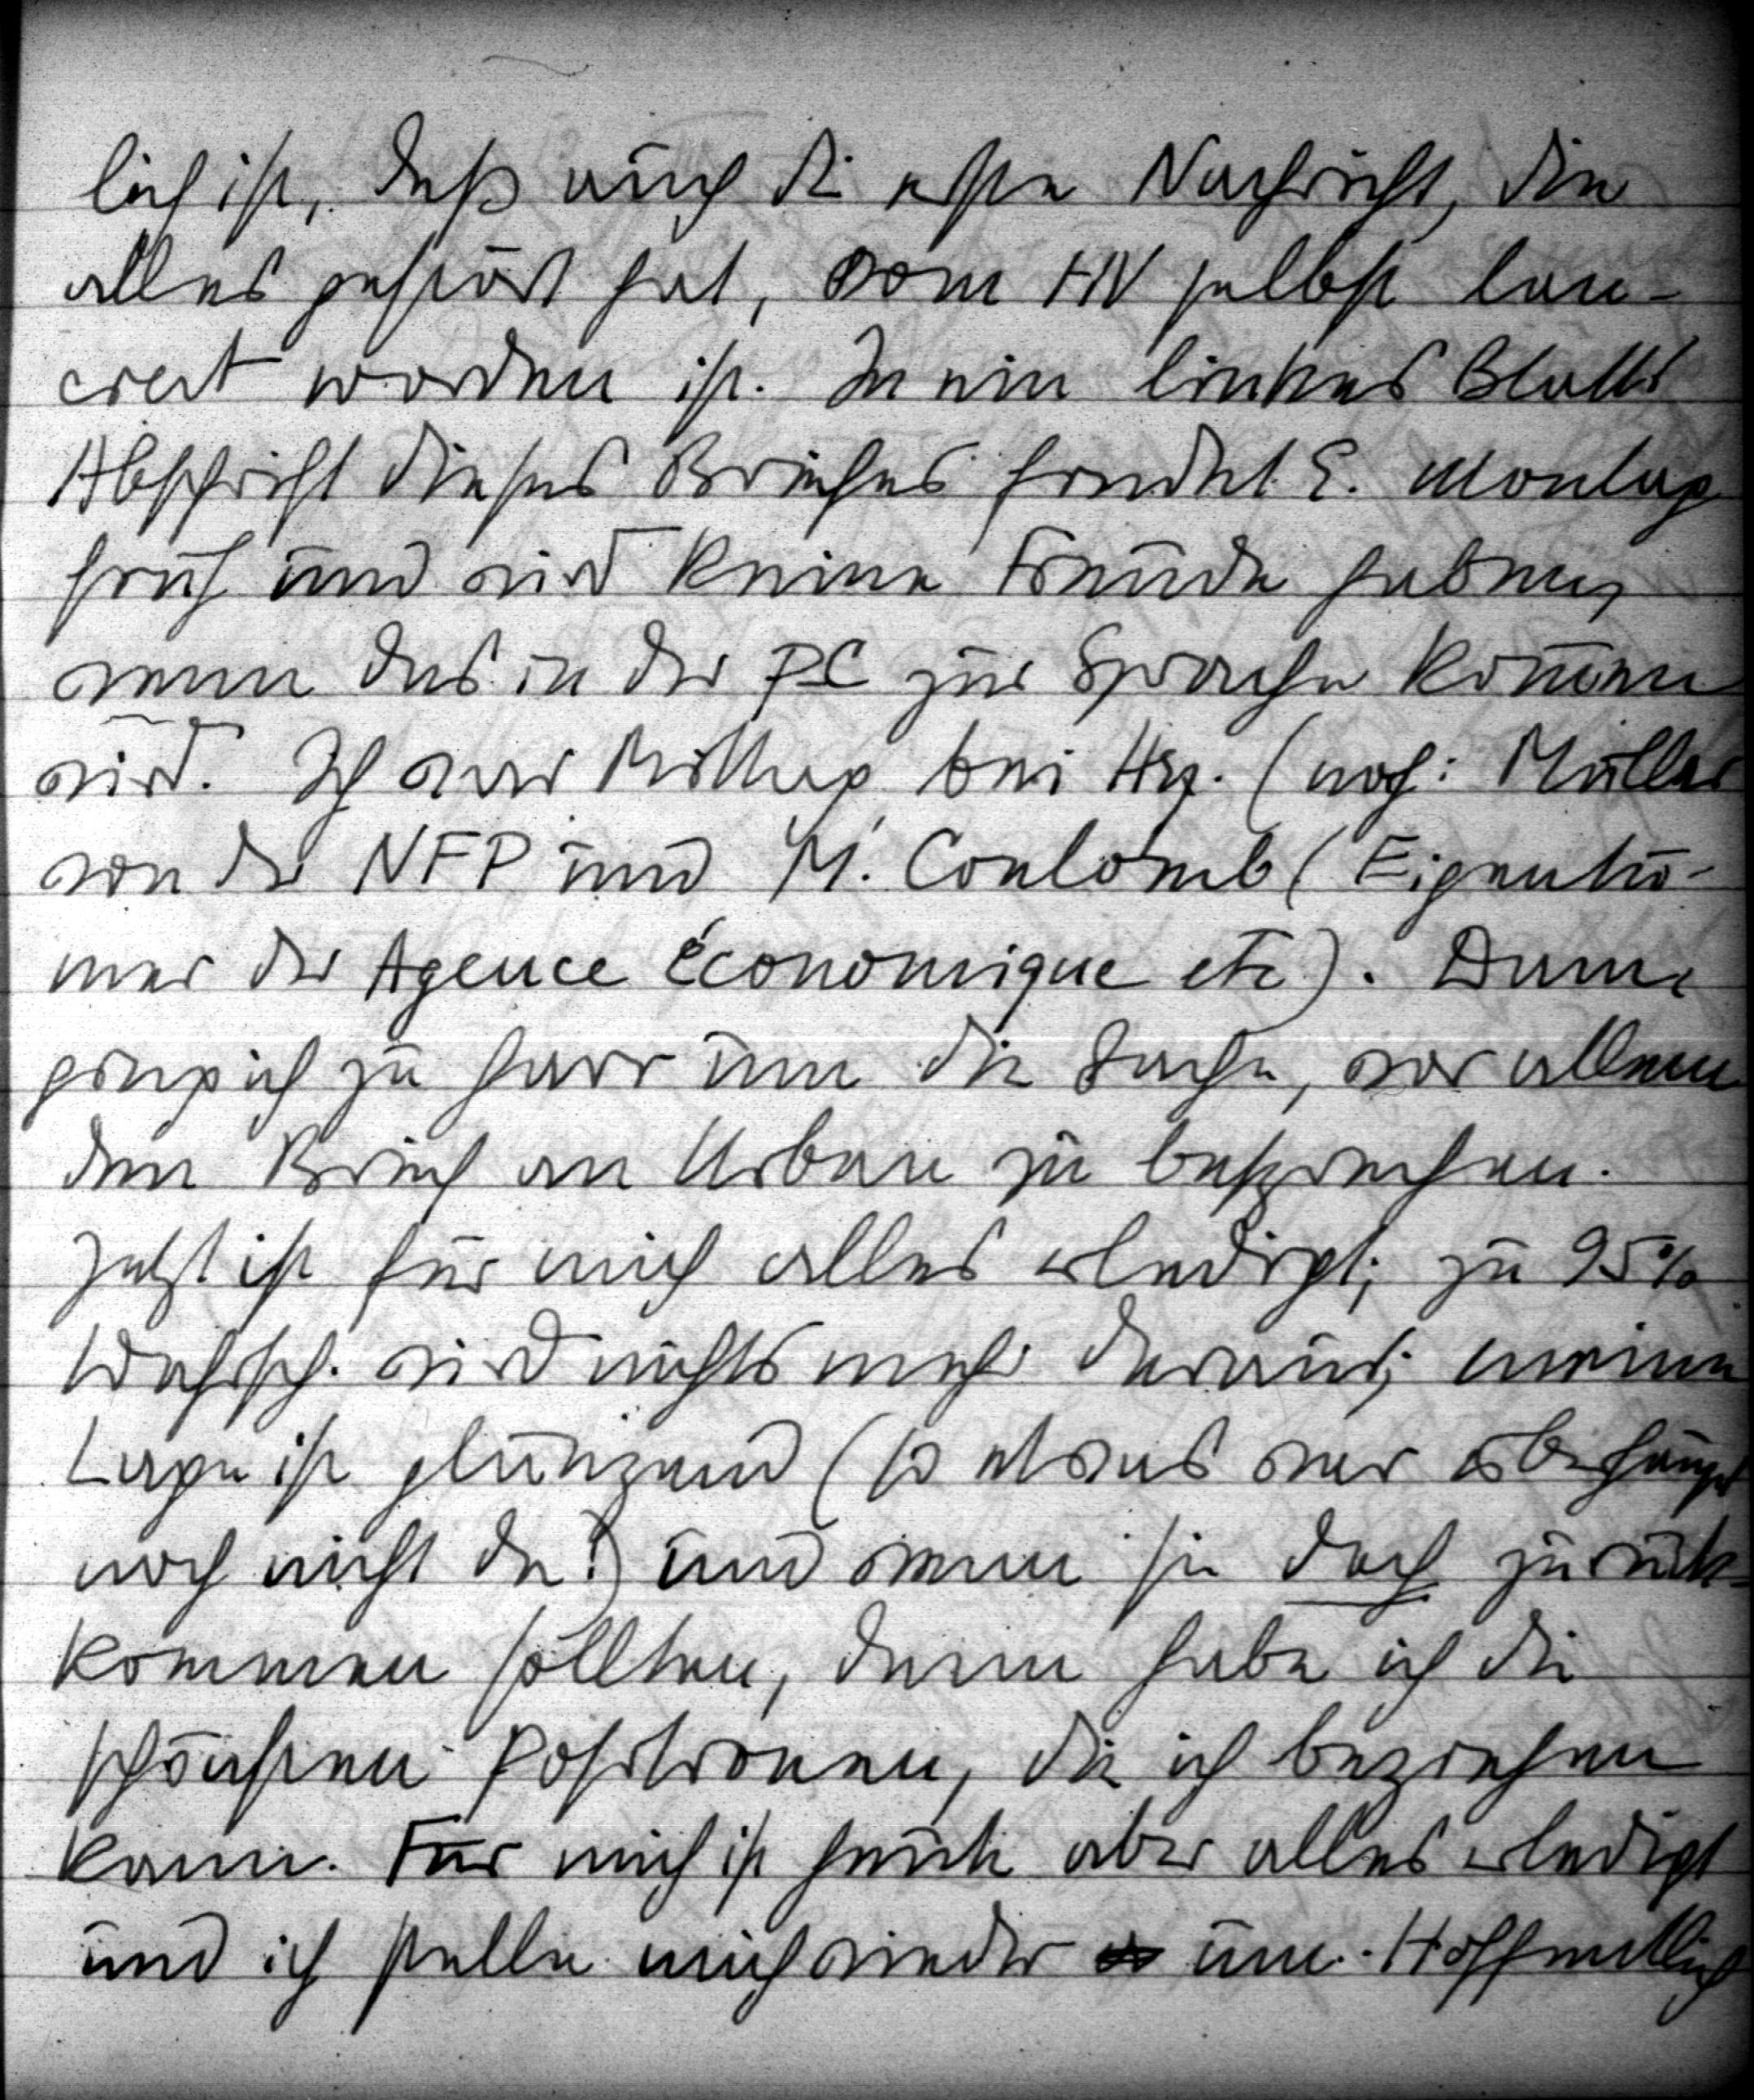 lich ist, daß auch die erste Nachricht, die
alles gestört hat, vom HN selbst lan-
ciert worden ist. In ein linkes Blatt!
Abschrift dieses Briefes findet E. Montag
früh und wird keine Freude haben,
wenn das in der PC zur Sprache kommen
wird. Ich war Mittag bei Hrz. (noch: Müller
von der NFP und M. Coulomb (Eigentü-
mer der Agence économique etc). Dann
ging ich zu Harr um die Sache, vor allem
den Brief an Urban zu besprechen.
Jetzt ist für mich alles erledigt; zu 95%
Wahrsch. wird nichts mehr daraus; meine
Lage ist glänzend (so etwas war überhaupt
noch nicht da!) und wenn sie doch zurück-
kommen sollten, dann habe ich die
schönsten Positionen, die ich beziehen
kann. Für mich ist heute aber alles erledigt
und ich stelle mich wieder um. Hoffentlich